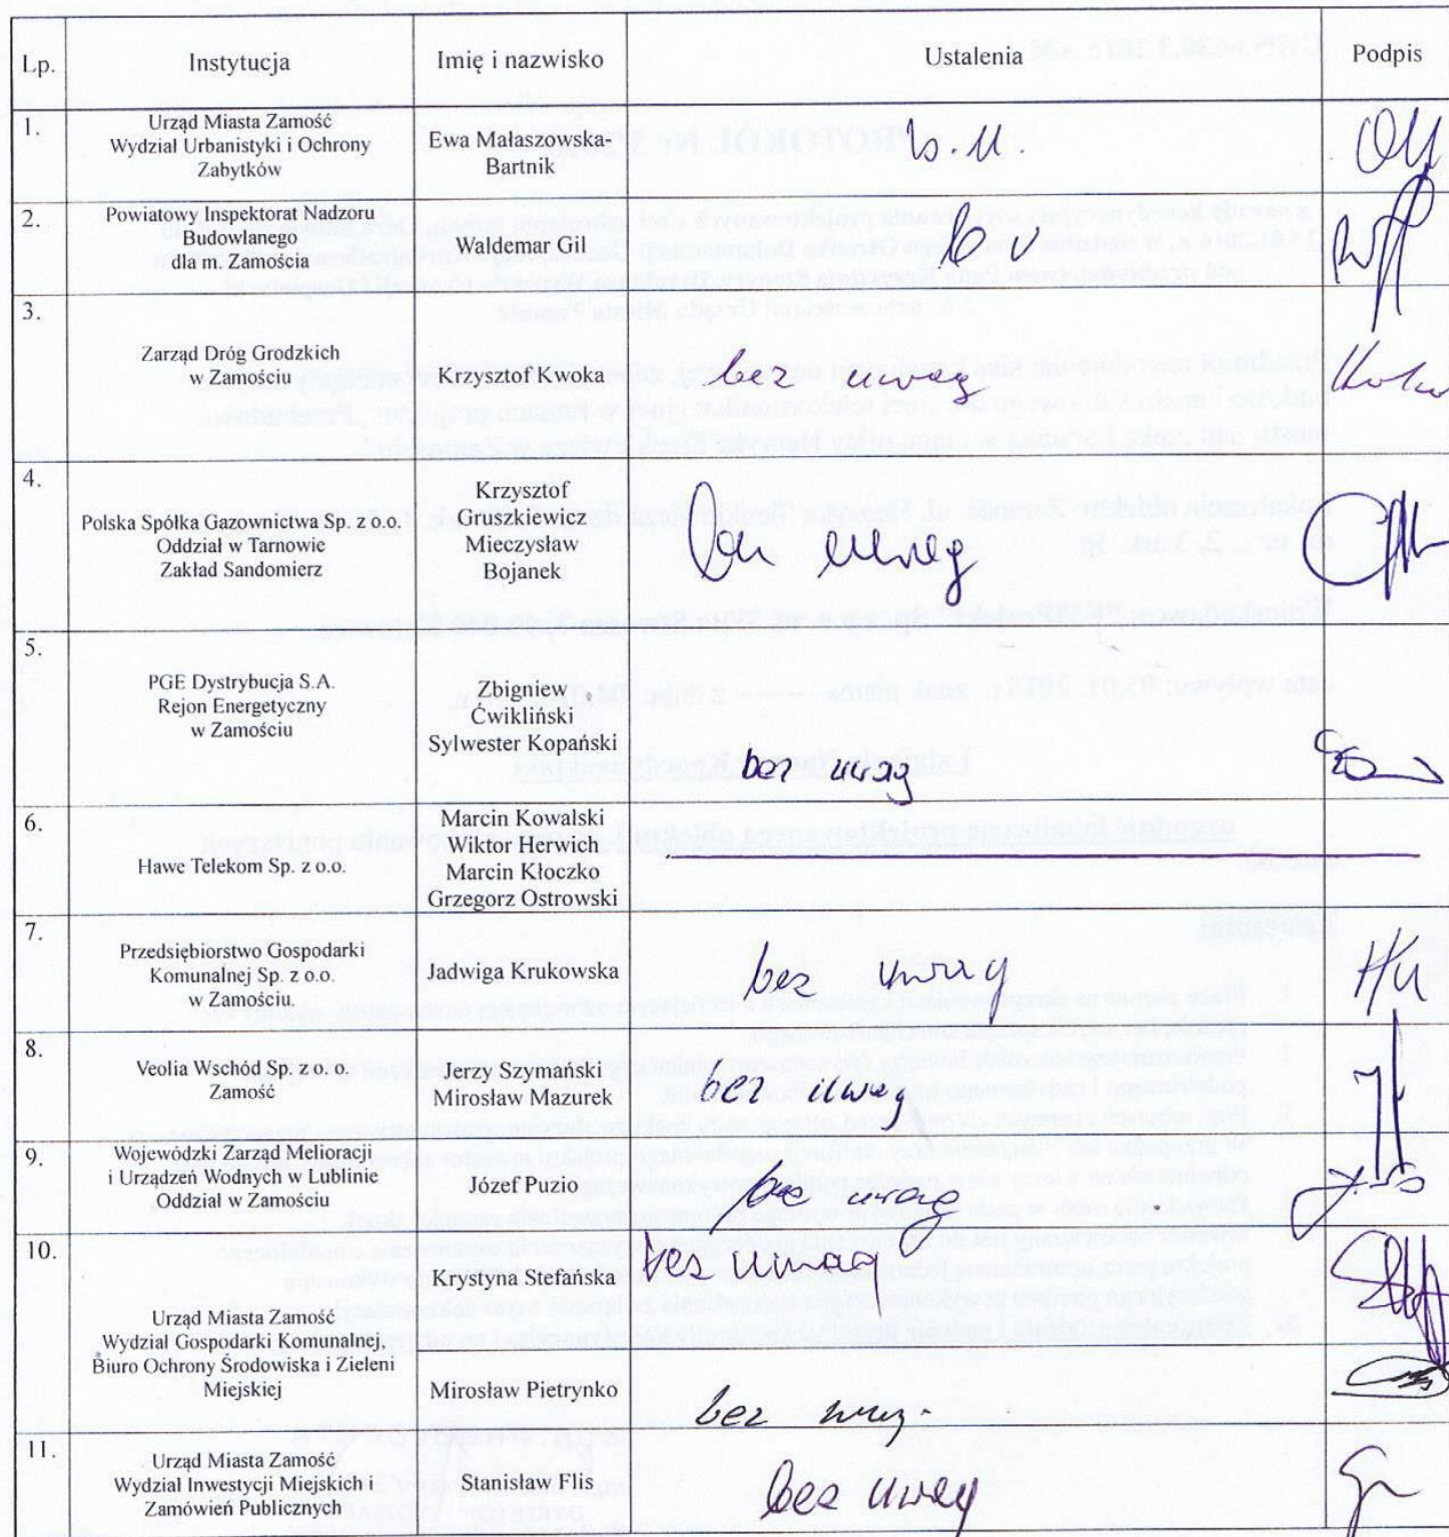 Lp. Instytucja Imię i nazwisko Ustalenia Podpis
1. Urząd Miasta Zamość
Wydział Urbanistyki i Ochrony
Zabytków
Ewa Małaszowska-
Bartnik
b.u.
2. Powiatowy Inspektorat Nadzoru
Budowlanego
dla m. Zamościa
Waldemar Gil
3. Zarząd Dróg Grodzkich
w Zamościu
Krzysztof Kwoka
bez uwag
4. Polska Spółka Gazownictwa Sp. z o.o.
Oddział w Tarnowie
Zakład Sandomierz
Krzysztof
Gruszkiewicz
Mieczysław
Bojanek
bez uwag
5. PGE Dystrybucja S.A.
Rejon Energetyczny
w Zamościu
Zbigniew
Ćwikliński
Sylwester Kopański
bez uwag
6. Hawe Telekom Sp. z o.o.
Marcin Kowalski
Wiktor Herwich
Marcin Kłoczko
Grzegorz Ostrowski
7. Przedsiębiorstwo Gospodarki
Komunalnej Sp. z o.o.
w Zamościu.
Jadwiga Krukowska
bez uwag
8. Veolia Wschód Sp. z o. o.
Zamość
Jerzy Szymański
Mirosław Mazurek
bez uwag
9. Wojewódzki Zarząd Melioracji
i Urządzeń Wodnych w Lublinie
Oddział w Zamościu
Józef Puzio
bez uwag
10. Urząd Miasta Zamość
Wydział Gospodarki Komunalnej,
Biuro Ochrony Środowiska i Zieleni
Miejskiej
Krystyna Stefańska
bez uwag
Mirosław Pietrynko
bez uwag
11. Urząd Miasta Zamość
Wydział Inwestycji Miejskich i
Zamówień Publicznych
Stanisław Flis
bez uwag